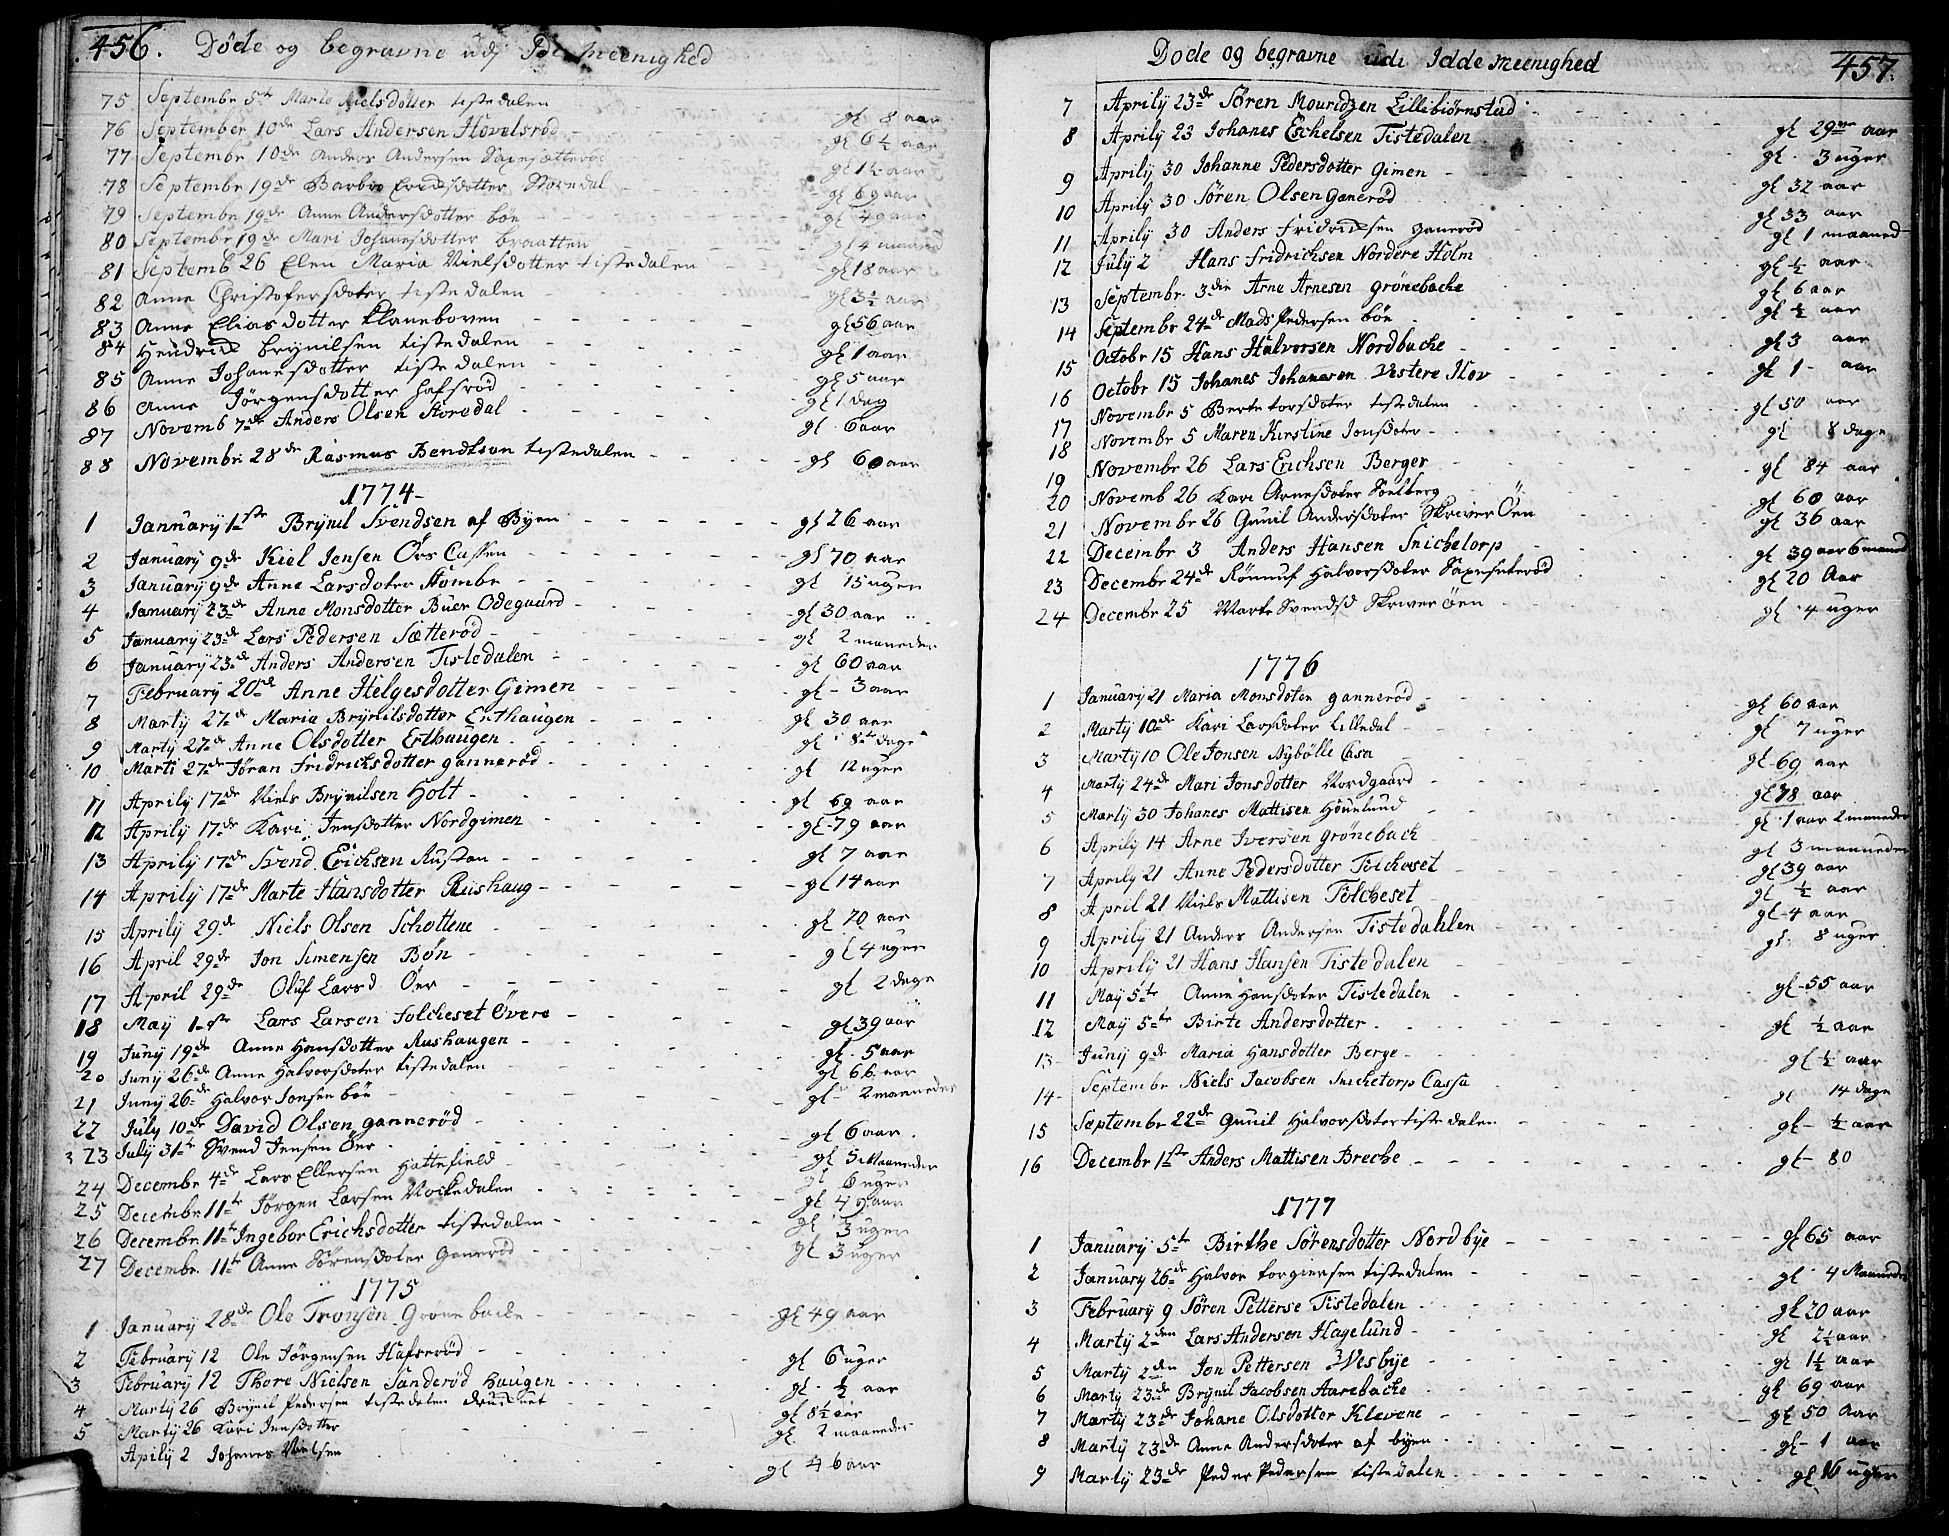 456. Døde og begravne udj Meenighed
75 Septembr 5te Marte Nielsdotter tistedalen gl 8 aar
76 September 10de Lars Andersen Hovelsrød gl 6½ aar
77 Septembr 10de Anders Andersen Saxesætterød gl 1½ aar
78 Septembr 19de Barbro dotter gl 69 aar
79 Septembr 19de Anne Andersdotter bøn gl 49 aar
80 Septembr 19de Mari Johansdotter braatten gl 4 maaned
81 Septemb 26 Elen Maria Nielsdotter tistedalen gl 18 aar
82 Anne Christofersdoter tistedalen gl 3½ aar
83 Anne Eliasdotter gl 56 aar
84 Hendrich Brynilsen tistedalen gl 1 aar
85 Anne Johanesdotter tistedalen gl 5 aar
86 Anne Jørgensdotter hafsrød gl 1 dag
87 Novemb 7de Anders Olsen Storedal gl 6 aar
88 Novembr 28de Rasmus Bendtson tistedalen gl 60 aar
1774
1 January 1ste Brynil Svendsen af Byen gl 26 aar
2 January 9de Kiel Jensen Ørs Cassen gl 70 aar
3 January 9de Anne Larsdoter Hombe gl 15 uger
4 January 23de Anne Monsdotter Buer Ødegaard gl 30 aar
5 January 23de Lars Pedersen Sætterød gl 2 maaneder
6 January 23de Anders Andersen Tistedalen gl 60 aar
7 February 20de Anne Helgesdotter Gimen gl 3 aar
8 Marty 27de Maria Brynilsdotter Erthaugen gl 30 aar
9 Marty 27de Anne Olsdotter Erthaugen gl 8te dage
10 Marti 27de Jøran Fridrichsdotter gannerød gl 12 uger
11 Aprily 17de Niels Brynilsen Holt gl 69 aar
12 Aprily 17de Kari Jensdotter Nordgimen gl 79 aar
13 Aprily 17de Svend Erichsen Rustan gl 7 aar
14 Aprily 17de Marte Hansdotter Riishaug gl 14 aar
15 Aprily 29de Niels Olsen Schottene gl 70 aar
16 April 29de Jon Simensen Bøn gl 4 uger
17 April 29de Oluf Larsd Øer gl 2 dage
18 May 1ste Lars Larsen Folcheset Øvere gl 39 aar
19 Juny 19de Anne Hansdotter Rushaugen gl 5 aar
20 Juny 26de Anne Halvorsdoter tistedalen gl 66 aar
21 Juny 26de Halvor Jonsen bøn gl 2 maaneder
22 July 10de David Olsen gannerød gl 6 aar
23 July 31te Svend Jensen Øer gl 5 Maaneder
24 Decembr 4de Lars Ellersen Hattefield gl 6 uger
25 Decembr 11te Jørgen Larsen Nockedalen gl 49 aar
26 Decembr 11te Ingebor Erichsdotter tistedalen gl 3 uger
27 Decembr 11te Anne Sørensdoter Ganerød gl 3 uger
1775
1 January 28de Ole Tronsen Grønebache gl 49 aar
2 February 12 Ole Jørgensen Hafserød gl 6 uger
3 February 12 Thore Nielsen Sanderød haugen gl ½ aar
4 Marty 26 Brynil Pedersen tistedalen druchnet gl 8½ aar
5 Marty 26 Kari Jensdotter gl 2 maaneder
Aprily 2 Johannes Nielsen gl 46 aar
Døde og begravne udi Idde Meenighed 457.
7 Aprily 23de Søren Mouridzen Lillebiørnstad gl 29 aar
8 Aprily 23 Johanes Eschelsen Tistedalen gl 3 uger
9 Aprily 30 Johanne Pedersdotter Gimen gl 32 aar
10 Aprily 30 Søren Olsen Ganerød gl 33 aar
11 Aprily 30 Anders Fridrichsen ganerød gl 1 maaned
12 July 2 Hans Fridrichsen Nordere Holm gl ½ aar
13 Septembr 3die Arne Arnesen grønebache gl 6 aar
14 Septembr 24de Mads Pedersen bøn gl ½ aar
15 Octobr 15 Hans Halvorsen Nordbache gl 3 aar
16 Octobr 15 Johanes Johanesen Vestere Hov gl 1 aar
17 Novembr 5 Berte torsdoter tistedalen gl 50 aar
18 Novembr 5 Maren Kirstine Jonsdoter gl 8 dage
19 Novembr 26 Lars Erichsen Berger gl 84 aar
20 Novemb 26 Kari Arnesdoter Soelberg gl 60 aar
21 Novembr 26 Gunil Andersdoter Skriver Øen gl 36 aar
22 Decembr 3 Anders Hansen Snichetorp gl 39 aar 6 maaned
23 Decembr 24de Rønnuf Halvorsdoter Saxesæterød gl 20 Aar
24 Decembr 25 Marte Svendsd Skriver Øen gl 4 uger
1776
1 January 21 Maria Monsdoter gannerød gl 60 aar
2 Marty 10de Kari Larsdoter Lilledal gl 7 uger
3 Marty 10 Ole Jonsen Nybølle Casa gl 69 aar
4 Marty 24de Mari Jonsdotter Nordgaard gl 78 aar
5 Marty 30 Johanes Mattisen Houelund gl 1 aar 2 maaneder
6 Aprily 14 Arne Iversen grønebach gl 3 maaneder
7 Aprily 21 Anne Pedersdotter Folcheset gl 39 aar
8 April 21 Niels Mattisen Folcheset gl ½ aar
9 Aprily 21 Anders Andersen Tistedahlen gl 4 aar
10 Aprily 21 Hans Hansen Tistedalen gl 8 uger
11 May 5te Anne Hansdoter Tistedalen gl 55 aar
12 May 5te Birte Andersdotter gl ½ aar
13 Juny 9de Maria Hansdotter Berge gl ½ aar
14 Septembr Niels Jacobsen Snichetorp Cassa gl 14 dage
15 Septembr 22de Gunil Halvorsdoter tistedalen gl ½ aar
16 Decembr 1ste Anders Mattisen Breche gl 80
1777
1 January 5te Birthe Sørensdotter Nordbye gl 65 aar
2 January 26de Halvor torgiersen tistedalen gl 4 Maaneder
3 February 9 Søren Petterse Tistedalen gl 20 aar
4 Marty 2den Lars Andersen Hagelund gl 2½ aar
5 Marty 2den Jon Pettersen Wesbye gl 1½ aar
6 Marty 23de Brynil Jacobsen Aarebache gl 69 aar
7 Marty 23de Johane Olsdotter Klevene gl 50 Aar
8 Marty 23de Anne Andersdoter af byen gl 1 aar
9 Marty 23de Peder Pedersen tistedalen gl 16 uger